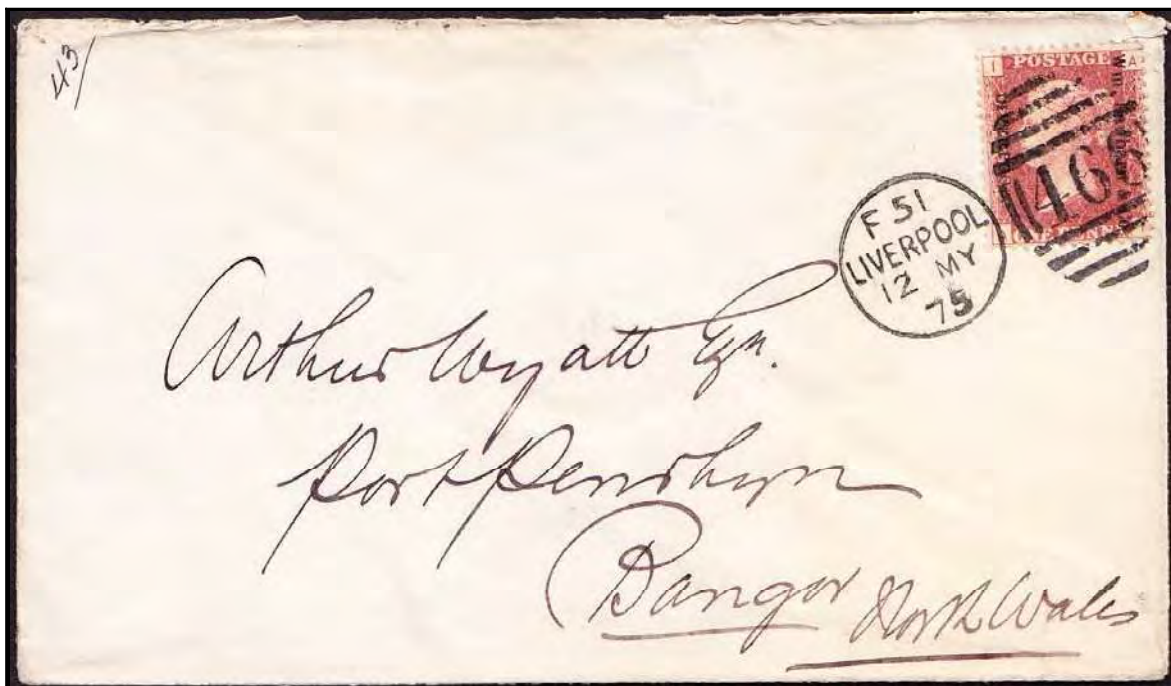 43/
I POSTAGE A
466
F 51
LIVERPOOL
12 MY
75
Arthur Wyatt Esq.
Port Penrhyn
Bangor North Wales